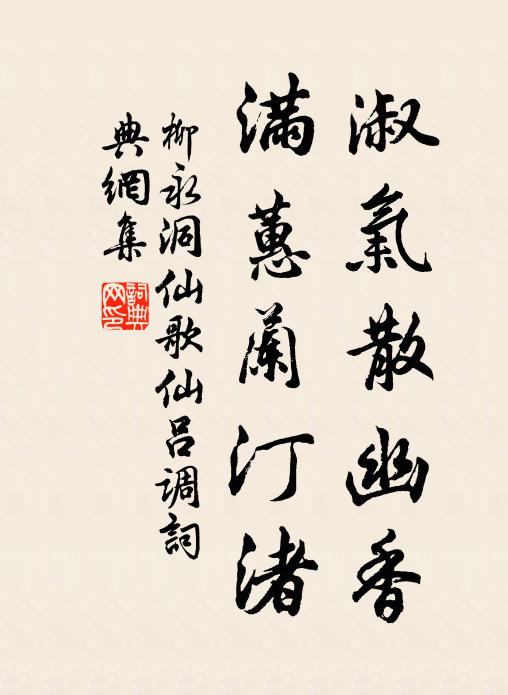 淑氣散幽香
滿蕙蘭汀渚
柳永洞仙歌仙呂調詞
典網集
詞典網印